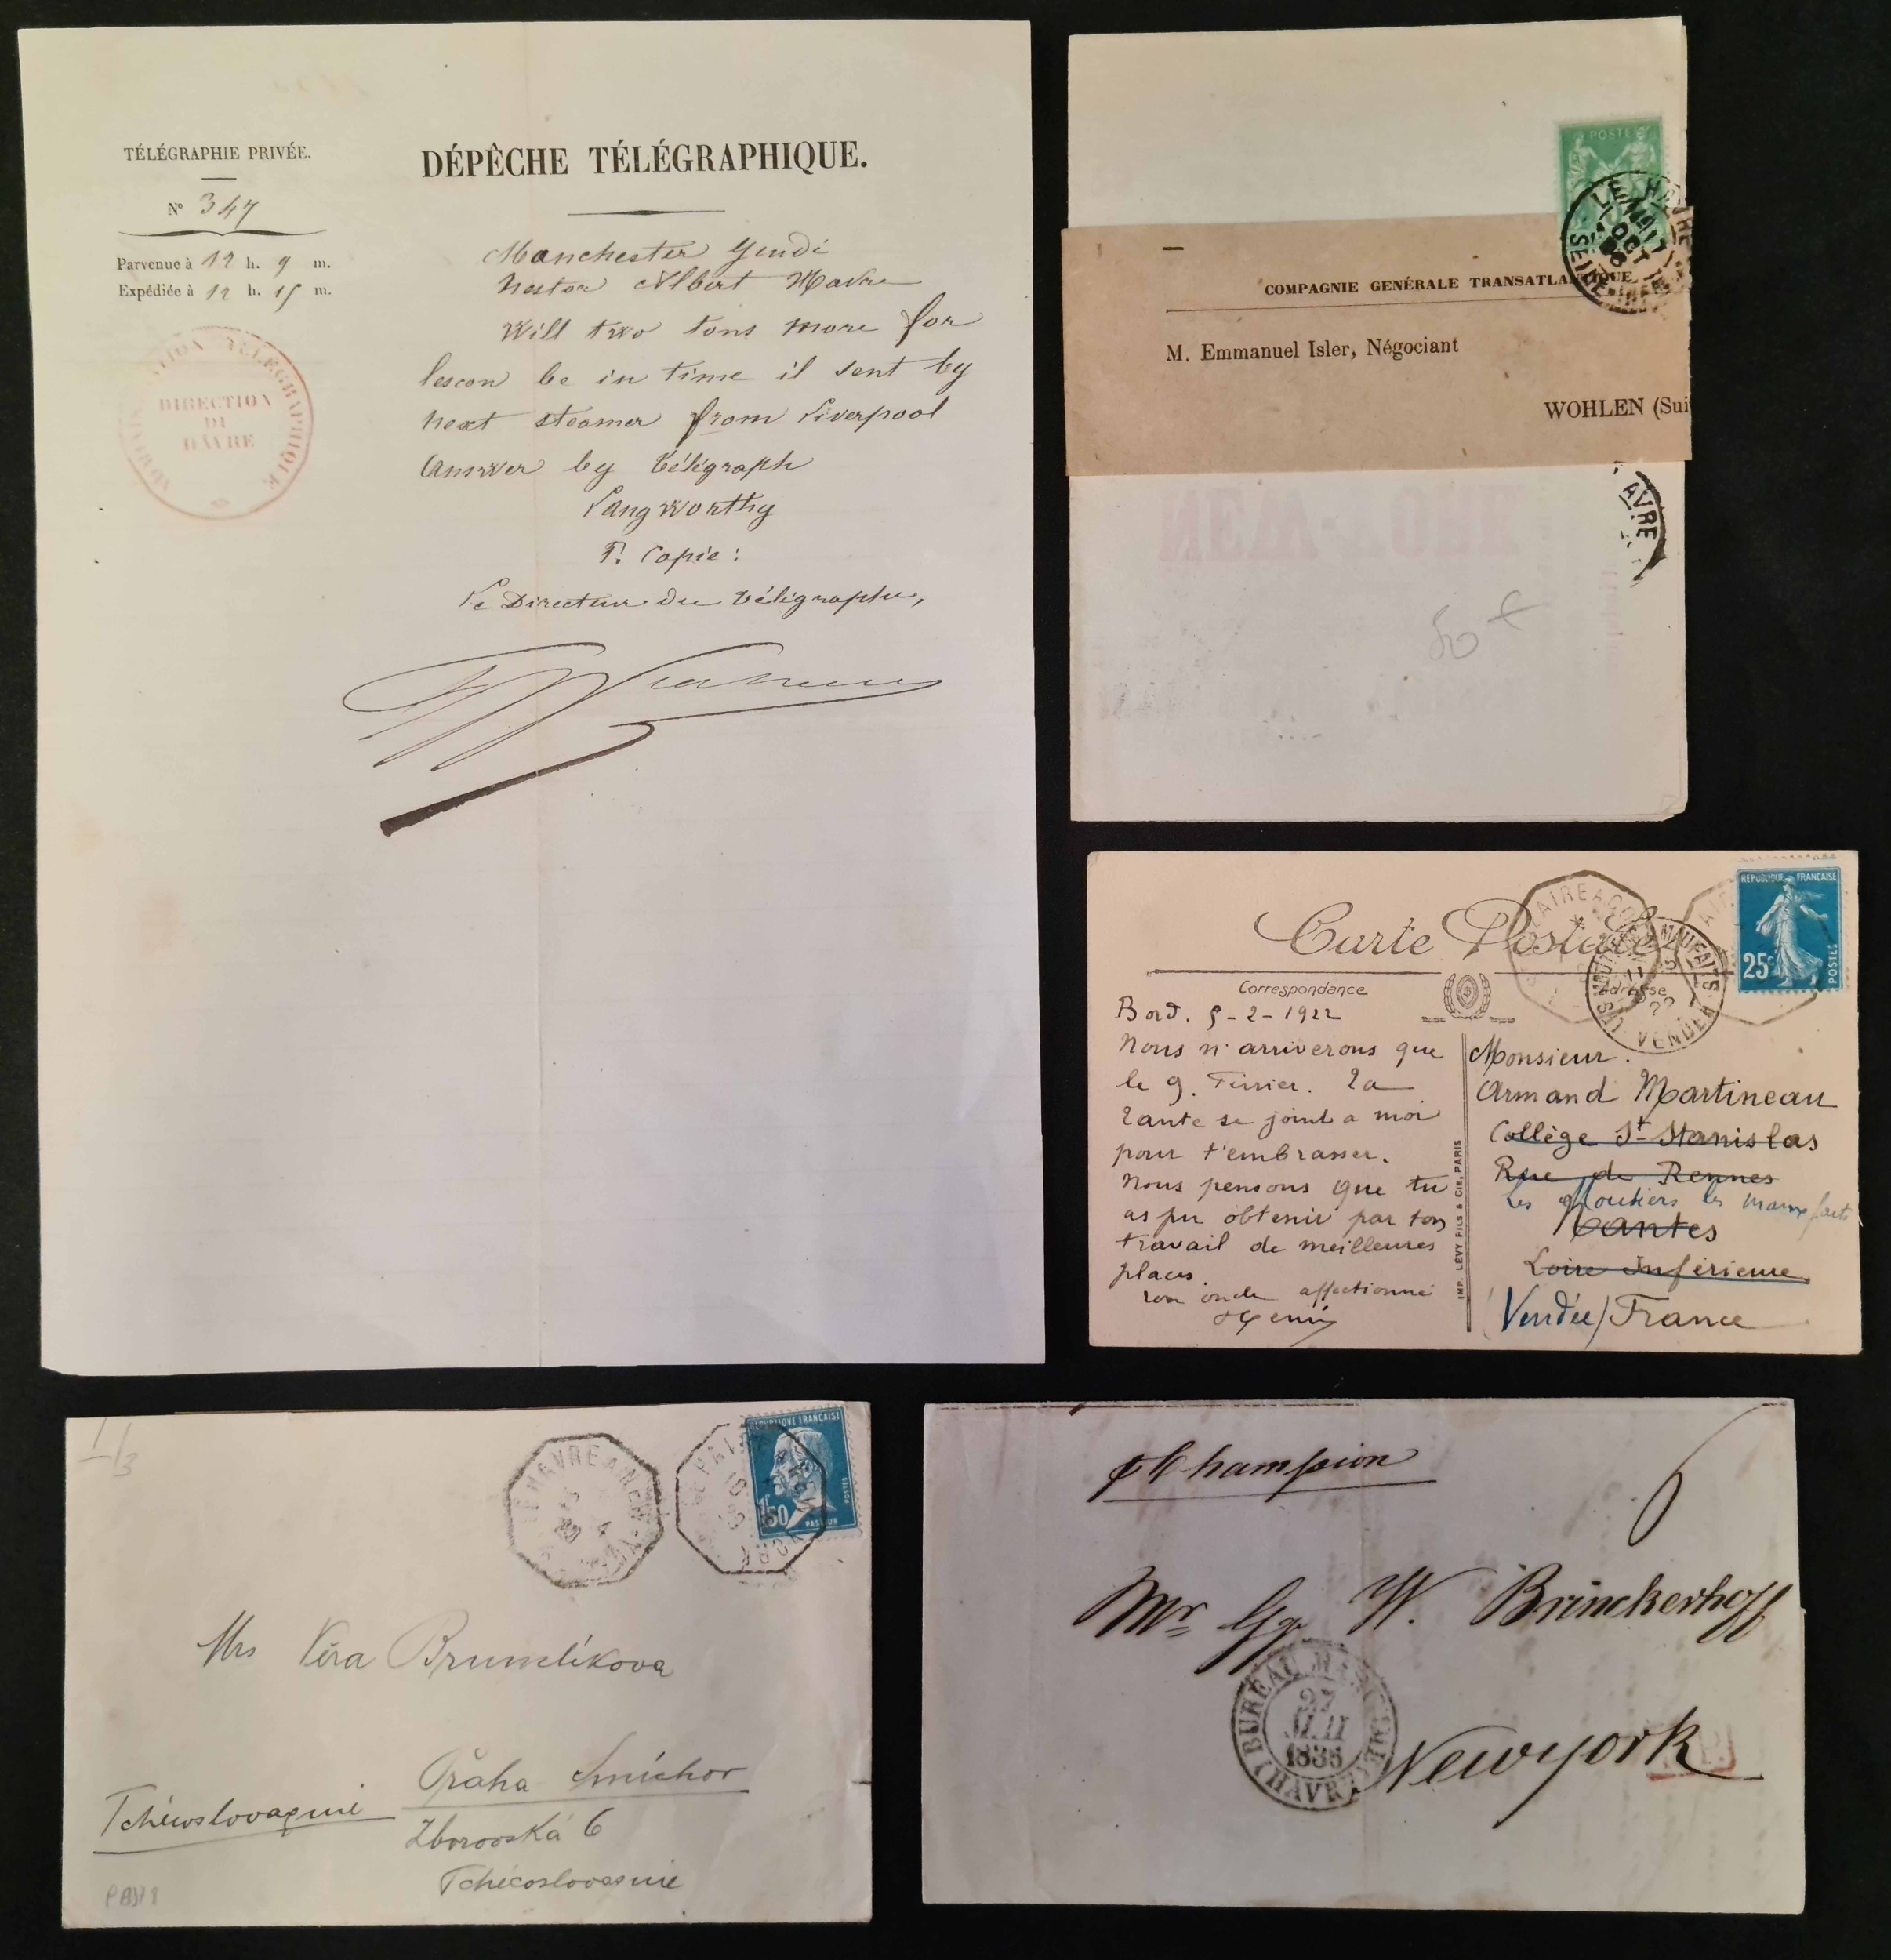 TÉLÉGRAPHIE PRIVÉE.
N° 347
Parvenue à 12 h. 9 m.
Expédiée à 12 h. 15 m.
DIRECTION
DU
HÀVRE
DÉPÊCHE TÉLÉGRAPHIQUE.
Manchester
Nestor Albert Havre
Will two tons more for
lescon be in time il sent by
next steamer from Liverpool
Answer by télégraph
Langworthy
P. Copie :
Le Directeur du télégraphe,
POSTE
LE HAVRE
OCT
SEINE-INFRE
COMPAGNIE GENÉRALE TRANSATLANTIQUE
M. Emmanuel Isler, Négociant
WOHLEN (Sui
AVRE
50 €
Carte Postale
REPUBLIQUE FRANÇAISE
25c
POSTES
Correspondance
Adresse
Bord. 5-2-1922
Nous n'arriverons que
le 9. Février. Ta
tante se joint a moi
pour t'embrasser.
Nous pensons que tu
as pu obtenir par ton
travail de meilleures
places.
ton oncle affectionné
IMP. LÉVY FILS & CIE, PARIS
Monsieur.
Armand Martineau
Collège St-Stanislas
Rue de Rennes
Les Moutiers les Mauxfaits
Nantes
Loire Inférieure
(Vendée) France
1/3
LE HAVRE A NEW-YORK
REPUBLIQUE FRANÇAISE
1F50
PASTEUR
POSTES
Mrs Věra Brumlíkova
Praha Smíchov
Tchécoslovaquie
Zborovská 6
Tchécoslovaquie
p Champion
6
Mr. Gg. W. Brinckerhoff
BUREAU MARITIME (HAVRE)
Newyork